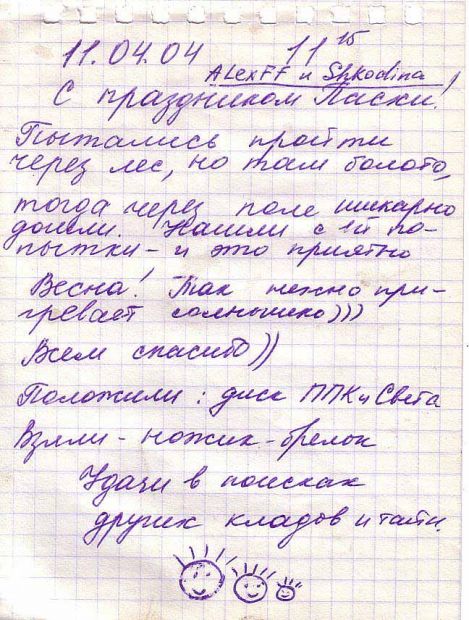 11.04.04 11 15
ALexFF и Shkodina
С праздником Пасхи!
Пытались пройти
через лес, но там болото,
тогда через поле шикарно
дошли. Нашли с 1й по-
пытки - и это приятно
Весна! Так нежно при-
гревает солнышко)))
Всем спасибо))
Положили: диск ППК и Света
Взяли - ножик-брелок
Удачи в поисках
других кладов и тайн.